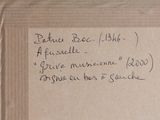 Patrice Bac (1946- )
Aquarelle
"Grive musicienne" (2000)
signé en bas à gauche